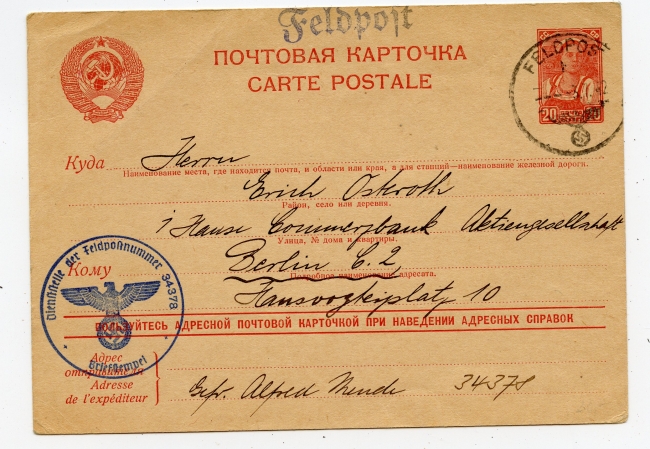 Feldpost
ПОЧТОВАЯ КАРТОЧКА
CARTE POSTALE
FELDPOST
20
Куда
Herrn
Наименование места, где находится почта, и области или края, а для станций—наименование железной дороги.
Erich Osteroth
Район, село или деревня.
i/Hause Commerzbank Aktiengesellschaft
Улица, № дома и квартиры.
Кому
Berlin C. 2
Подробное наименование адресата.
Hausvogteiplatz 10
Dienststelle der Feldpostnummer 34378
Briefstempel
ПОЛЬЗУЙТЕСЬ АДРЕСНОЙ ПОЧТОВОЙ КАРТОЧКОЙ ПРИ НАВЕДЕНИИ АДРЕСНЫХ СПРАВОК
Адрес
отправителя
Adresse
de l'expéditeur
Gefr. Alfred Mende 34378